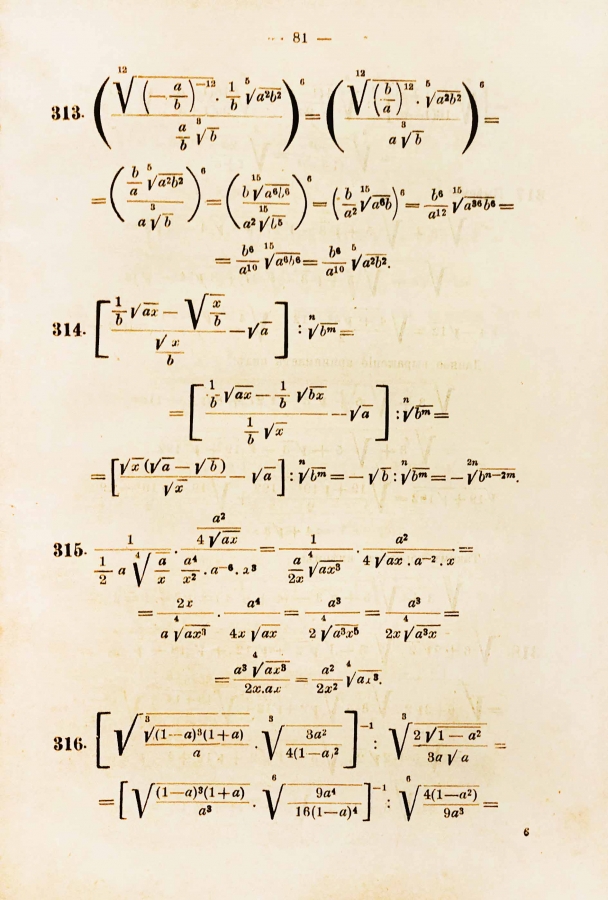 — 81 —
313. $\left(\frac{\sqrt[12]{\left(-\frac{a}{b}\right)^{-12}} \cdot \frac{1}{b}\sqrt[5]{a^2b^2}}{\frac{a}{b}\sqrt[3]{b}}\right)^6 = \left(\frac{\sqrt[12]{\left(\frac{b}{a}\right)^{12}} \cdot \sqrt[5]{a^2b^2}}{a\sqrt[3]{b}}\right)^6 =$
$= \left(\frac{\frac{b}{a}\sqrt[5]{a^2b^2}}{a\sqrt[3]{b}}\right)^6 = \left(\frac{b\sqrt[15]{a^6b^6}}{a^2\sqrt[15]{b^5}}\right)^6 = \left(\frac{b}{a^2}\sqrt[15]{a^6b}\right)^6 = \frac{b^6}{a^{12}}\sqrt[15]{a^{36}b^6} =$
$= \frac{b^6}{a^{10}}\sqrt[15]{a^6b^6} = \frac{b^6}{a^{10}}\sqrt[5]{a^2b^2}.$
314. $\left[\frac{\frac{1}{b}\sqrt{ax} - \sqrt{\frac{x}{b}}}{\frac{\sqrt{x}}{b}} - \sqrt{a}\right] : \sqrt[n]{b^m} =$
$= \left[\frac{\frac{1}{b}\sqrt{ax} - \frac{1}{b}\sqrt{bx}}{\frac{1}{b}\sqrt{x}} - \sqrt{a}\right] : \sqrt[n]{b^m} =$
$= \left[\frac{\sqrt{x}(\sqrt{a} - \sqrt{b})}{\sqrt{x}} - \sqrt{a}\right] : \sqrt[n]{b^m} = -\sqrt{b} : \sqrt[n]{b^m} = -\sqrt[2n]{b^{n-2m}}.$
315. $\frac{1}{\frac{1}{2}a\sqrt[4]{\frac{a}{x}}} \cdot \frac{\frac{a^2}{4\sqrt{ax}}}{\frac{a^4}{x^2} \cdot a^{-6} \cdot x^3} = \frac{1}{\frac{a}{2x}\sqrt[4]{ax^3}} \cdot \frac{a^2}{4\sqrt{ax} \cdot a^{-2} \cdot x} =$
$= \frac{2x}{a\sqrt[4]{ax^3}} \cdot \frac{a^4}{4x\sqrt{ax}} = \frac{a^3}{2\sqrt[4]{a^3x^5}} = \frac{a^3}{2x\sqrt[4]{a^3x}} =$
$= \frac{a^3\sqrt[4]{ax^3}}{2x.ax} = \frac{a^2}{2x^2}\sqrt[4]{ax^3}.$
316. $\left[\sqrt{\frac{\sqrt[3]{(1-a)^3(1+a)}}{a}} \cdot \sqrt[3]{\frac{3a^2}{4(1-a)^2}}\right]^{-1} : \sqrt[3]{\frac{2\sqrt{1-a^2}}{3a\sqrt{a}}} =$
$= \left[\sqrt{\frac{(1-a)^3(1+a)}{a^3}} \cdot \sqrt[6]{\frac{9a^4}{16(1-a)^4}}\right]^{-1} : \sqrt[6]{\frac{4(1-a^2)}{9a^3}} =$
6